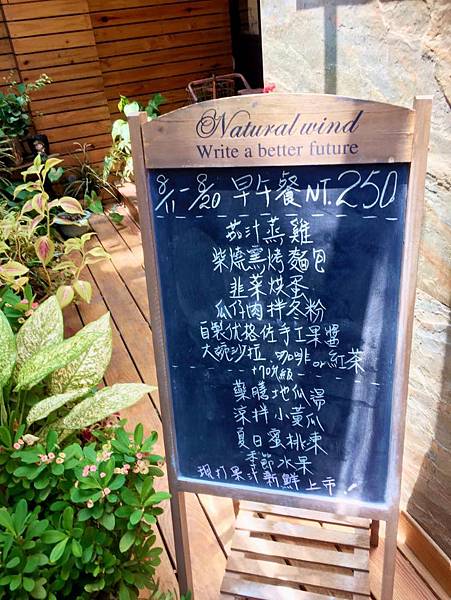 Natural wind
Write a better future
8/11-8/20 早午餐 NT.250
茄汁蒸雞
柴燒窯烤麵包
韭菜烘蛋
瓜仔肉拌冬粉
自製优格佐手工果醬
大碗沙拉 咖啡or紅茶
+70升級
藥膳地瓜湯
涼拌小黃瓜
夏日蜜桃凍
季節水果
現打果汁新鮮上市!